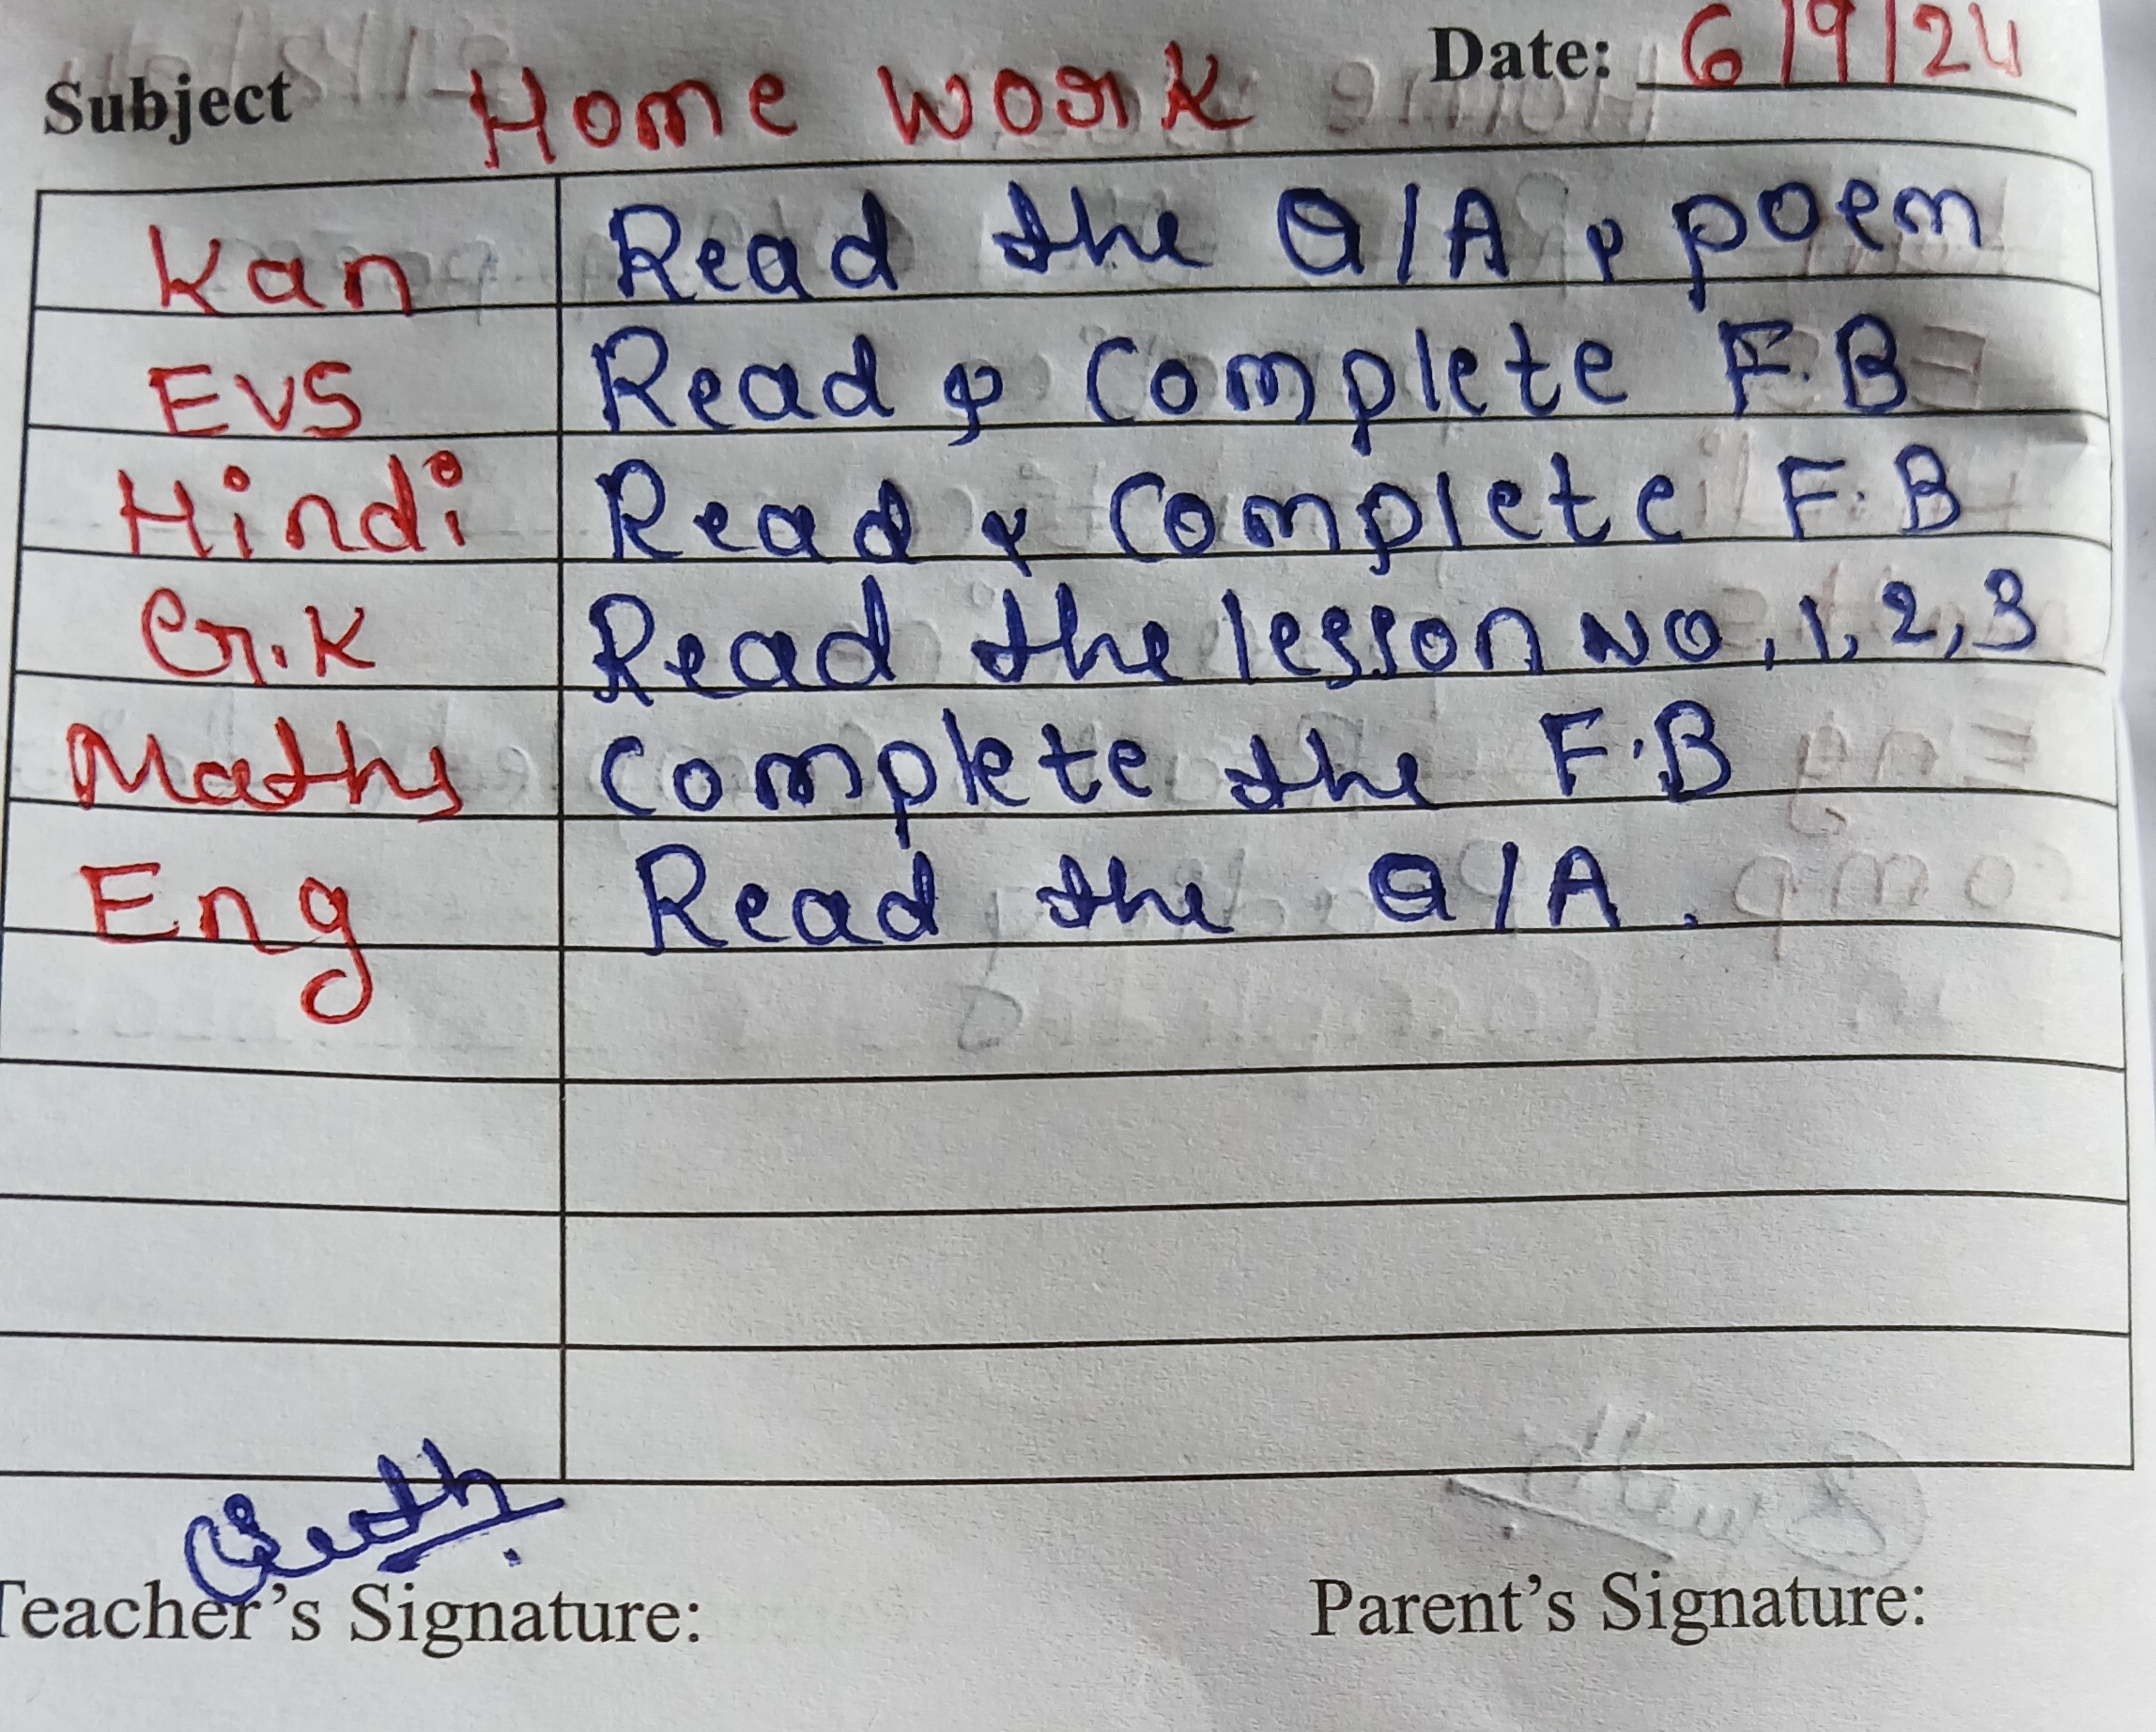 Subject Home work Date: 6/9/24
Kan Read the Q/A & poem
EVS Read & Complete F.B
Hindi Read & Complete F.B
G.K Read the lesson NO, 1, 2, 3
Maths Complete the F.B
Eng Read the Q/A.
Teacher's Signature: Parent's Signature: